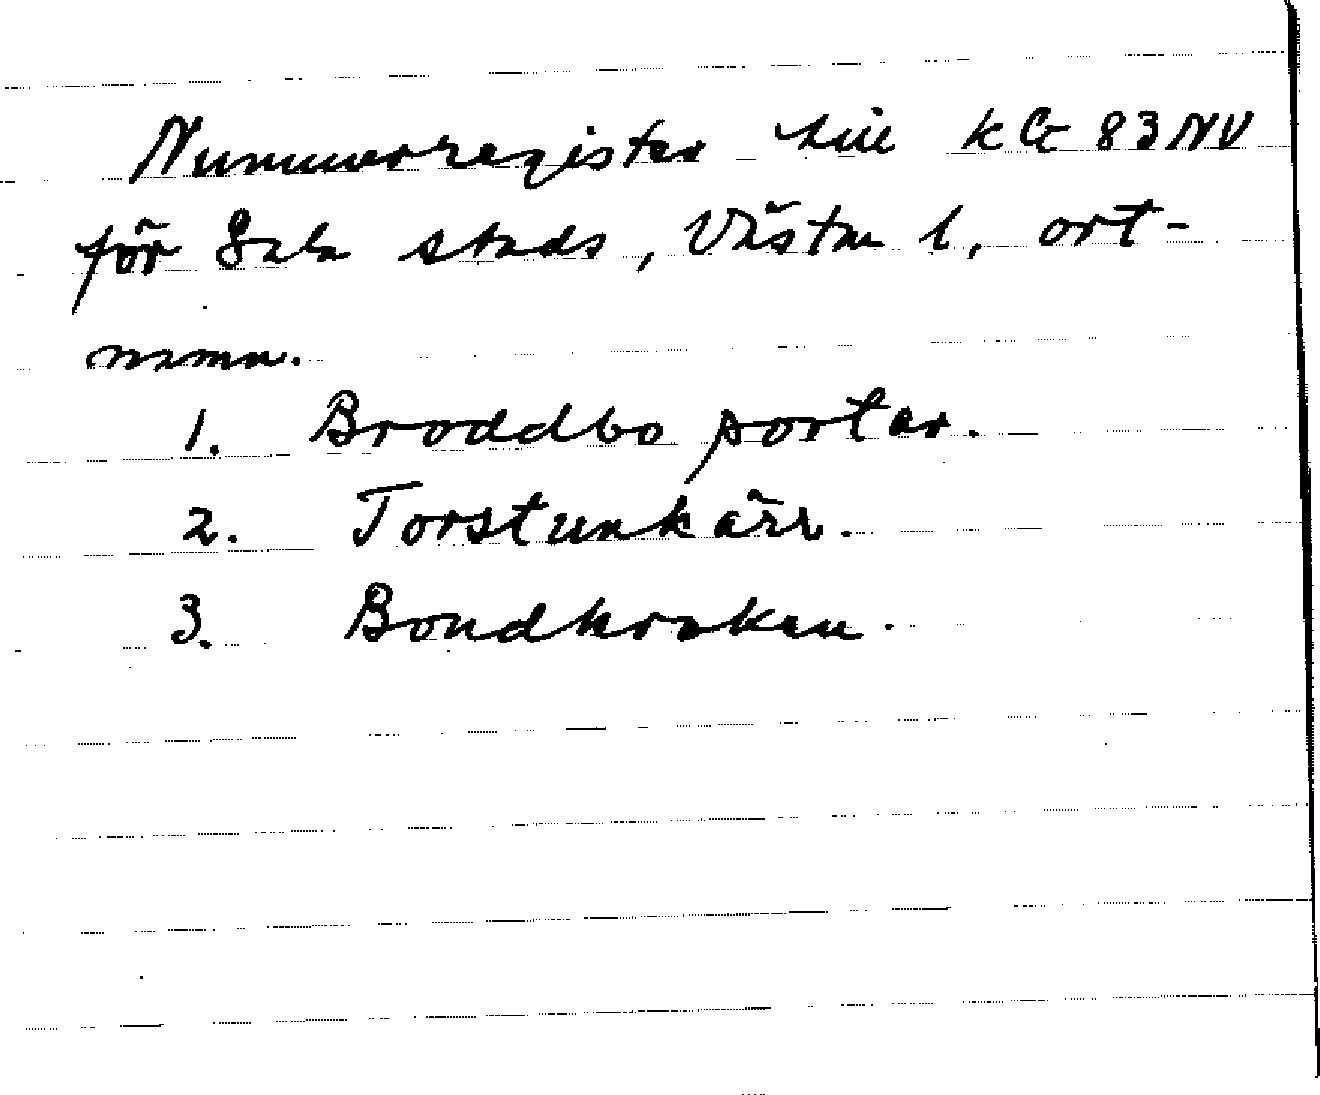 Nummerregister till kG 83 NV
för Sala stads, Västm l, ort-
namn.
1. Broddbo portar.
2. Torstunkärr.
3. Bondkroken.